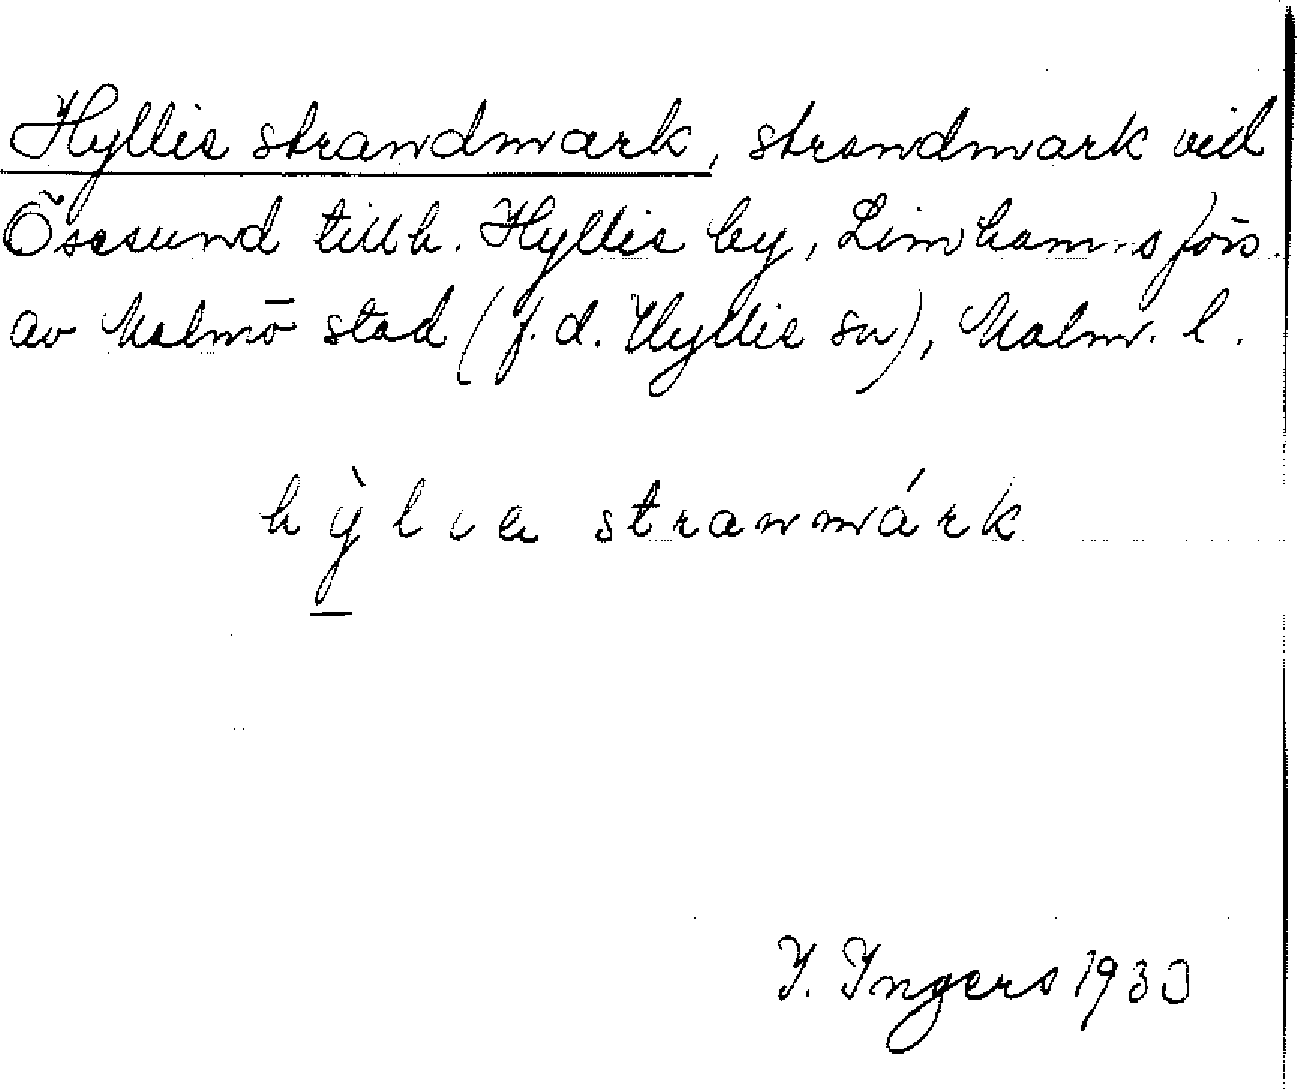 Hyllie strandmark, strandmark vid
Öresund tillh. Hyllie by, Limhamns förs.
av Malmö stad (f.d. Hyllie sn), Malm. l.
hỳlıa stranmárk
I. Ingers 1930